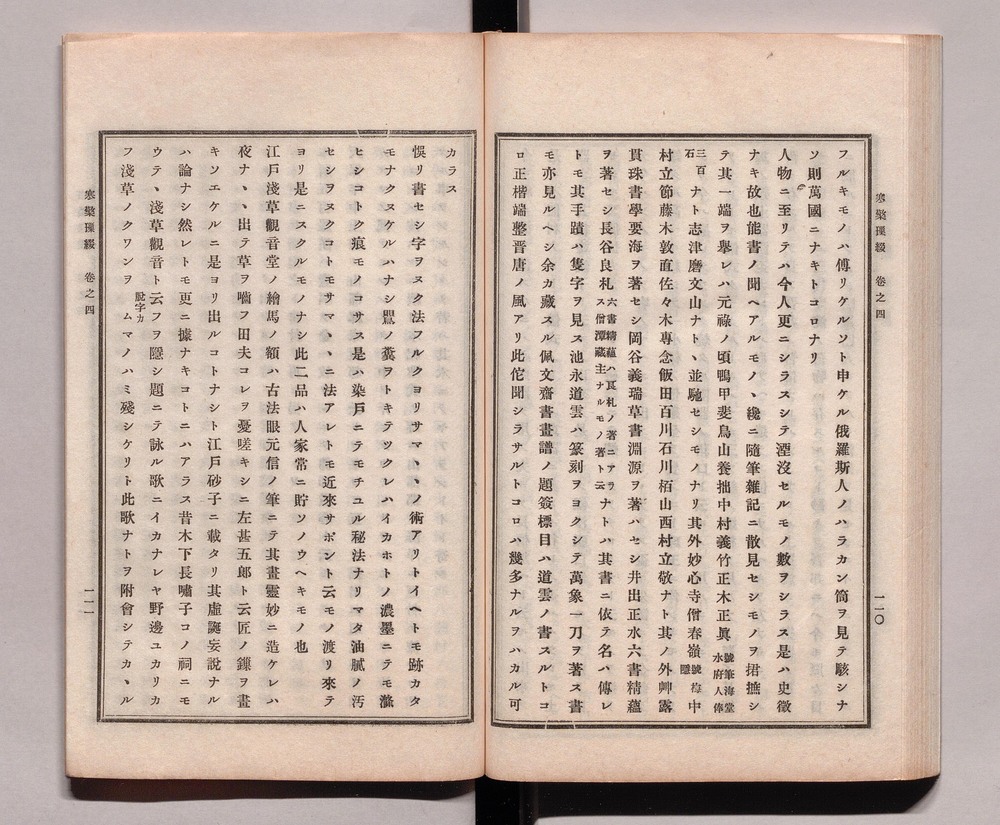 フルキモノハ傳リケルソト申ケル俄羅斯人ノハラカン筒ヲ見テ駭シナ
ソ則萬國ニナキトコロナリ
人物ニ至リテハ今人更ニシラスシテ湮沒セルモノ數ヲシラス是ハ史徵
ナキ故也能書ノ聞ヘアルモノヽ纔ニ隨筆雜記ニ散見セシモノヲ捃摭シ
テ其一端ヲ擧レハ元祿ノ頃鴨甲斐鳥山養拙中村義竹正木正眞 號筆海堂水府人俸
三百石 ナト志津磨文山ナトヽ並馳セシモノナリ其外妙心寺僧春嶺 號 隱 中
村立節藤木敦直佐々木專念飯田百川石川栢山西村立敬ナト其ノ外艸露
貫珠書學要海ヲ著セシ岡谷義瑞草書淵源ヲ著ハセシ井出正水六書精蘊
ヲ著セシ長谷良札 六書精蘊ハ良札ノ著ニアラス僧潭藏主ナルモノ著ト云 ナトハ其書ニ依テ名ハ傳レ
トモ其手蹟ハ隻字ヲ見ス池永道雲ハ篆刻ヲヨクシテ萬象一刀ヲ著ス書
モ亦見ルヘシ余カ藏スル佩文齋書畫譜ノ題簽標目ハ道雲ノ書スルトコ
ロ正楷端整晋唐ノ風アリ此佗聞シラサルトコロハ幾多ナルヲハカル可
寒檠璅綴 卷之四
一一〇
カラス
悞リ書セシ字ヲヌク法フルクヨリサマヽヽノ術アリトイヘトモ跡カタ
モナクヌケルハナシ鼺ノ糞ヲトキテツクレハイカホトノ濃墨ニテモ滌
ヒシコトク痕モノコサス是ハ染戶ニテモチユル秘法ナリマタ油膩ノ汚
セシヲヌクコトモサマヽヽニ法アレトモ近來サボント云モノ渡リ來テ
ヨリ是ニスクルモノナシ此二品ハ人家常ニ貯ソノウヘキモノ也
江戶淺草觀音堂ノ繪馬ノ額ハ古法眼元信ノ筆ニテ其畫靈妙ニ造ケレハ
夜ナヽヽ出テ草ヲ嚙フ田夫コレヲ憂嗟キシニ左甚五郎ト云匠ノ鏁ヲ畫
キンエケルニ是ヨリ出ルコトナシト江戶砂子ニ載タリ其虛誕妄說ナル
ハ論ナシ然レトモ更ニ據ナキコトニハアラス昔木下長嘯子コノ祠ニモ
ウテヽ淺草觀音ト云フヲ隱シ題ニテ詠ル歌ニイカナレヤ野邊ユカリカ
脫字カ
フ淺草ノクワンヲ ムマノハミ殘シケリト此歌ナトヲ附會シテカヽル
寒檠璅綴 卷之四
一一一